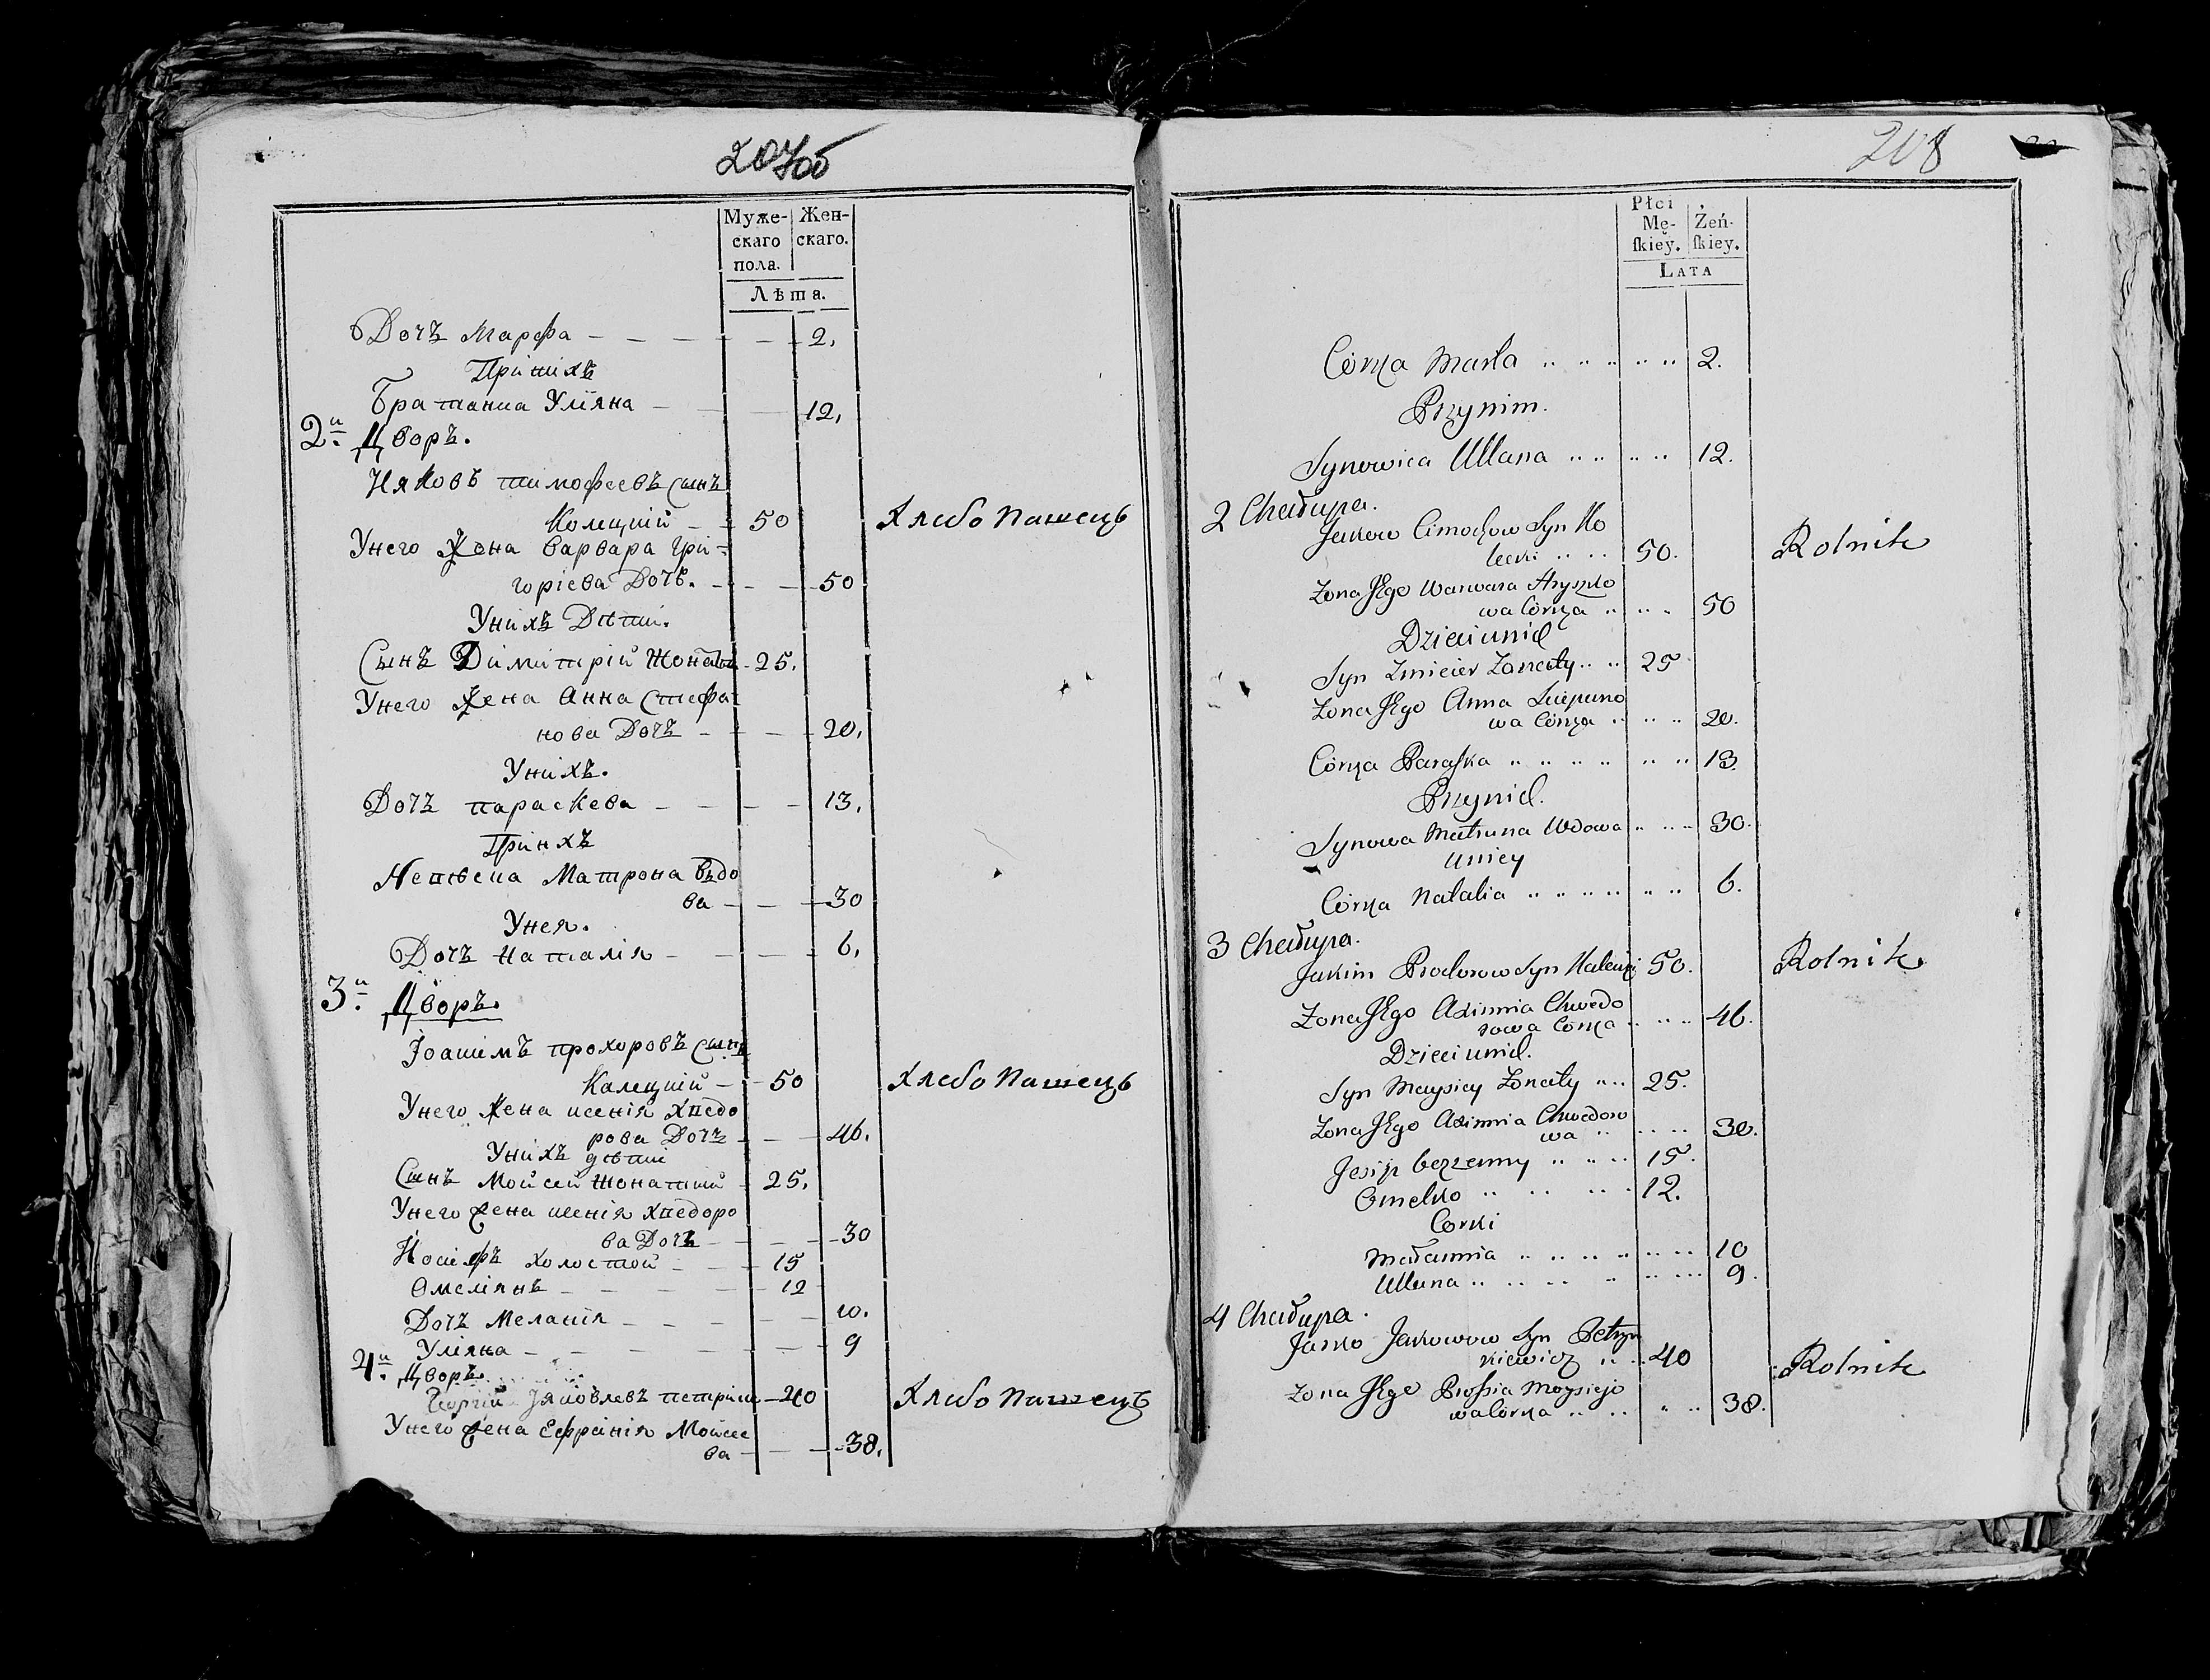 207об
Муже-
скаго
пола.
Жен-
скаго.
Лѣта.
Дочъ Марфа 2.
При нихъ
Братаница Уліяна 12.
2й Дворъ.
Ияковъ тимофеевъ сынъ
Колецкій 50 Хлебопашець
Унего Жена Варвара Гри-
горіева Дочь. 50
Унихъ Дѣти.
Сынъ Димитрій Жонатій 25.
Унего Жена Анна Стефа-
нова Дочъ 20.
Унихъ.
Дочъ параскева 13.
При нхъ
Невѣска Матрона Вдо
ва 30
Унея.
Дочъ Наталія 6.
3й Дворъ.
Іоакимъ прохоровъ сынъ
Калецкій 50 Хлебопашець
Унего Жена ксенія Хведо
рова Дочъ 46.
Унихъ дѣти
Сынъ Мойсей Жонатий 25.
Унего Жена ксенія Хведоро
ва Дочъ 30
Иосифъ холостой 15
Омеліянъ 12
Дочъ Меланія 10.
Уліяна 9
4й Дворъ.
Яковлевъ 40 Хлебопашець
Унего Жена Ефрсінія Мойсее
ва 38.
208
Płci
Mę-
ſkiey.
Żeń-
ſkiey.
LATA
Córka Marta 2.
Przynim.
Synowica Ullana 12.
2 Chałupa.
Jakow Cimochow Syn Ko
lecki 50. Rolnik
Zona Jego Warwara Hryszko
wa Córka 50
Dzieci unich
Syn Zmicier Zonaty 25
Zona Jego Anna Sciepano
wa Córka 20.
Córka Paraſka 13
Przynich.
Synowa Matruna Wdowa 30.
Uniey
Córka Natalia 6.
3 Chałupa.
Jakim Prochorow Syn Kalecki 50. Rolnik
Zona Jego Axinnia Chwedo
rowa Corka 46.
Dzieci unich.
Syn Maysiey Zonaty 25.
Zona Jego Axinnia Chwedoro
wa 30.
Jesip bezzenny 15.
Omelko 12.
Corki
Małannia 10
Ullana 9.
4 Chałupa.
Jasko Jakowow Syn Petry
kiewicz 40 Rolnik
Zona Jego Prosia Moysiejo
wa Córka 38.